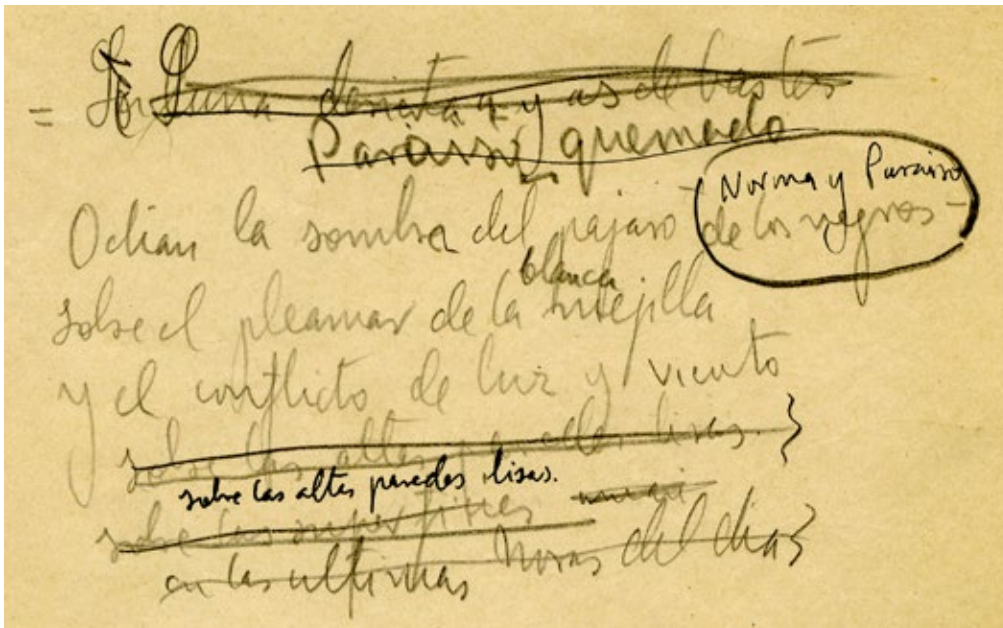 = Luna y as de bastos
Paraiso quemado
Norma y Paraiso
Odian la sombra del pajaro - de los negros -
sobre el pleamar de la blanca mejilla
y el conflicto de luz y viento
sobre las altas paredes lisas.
sobre las altas paredes lisas.
sobre las superficies
en las ultimas horas del dia